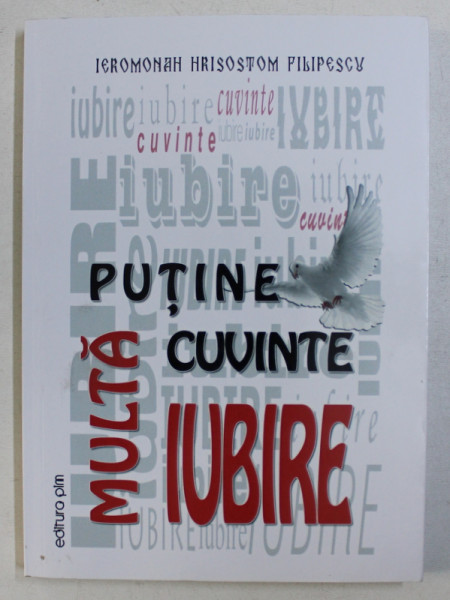 IEROMONAH HRISOSTOM FILIPESCU
iubire iubire cuvinte IUBIRE
cuvinte iubire iubire
iubire iubire
cuvinte
PUȚINE
CUVINTE
MULTĂ
IUBIRE
IUBIRE iubire IUBIRE
editura pim